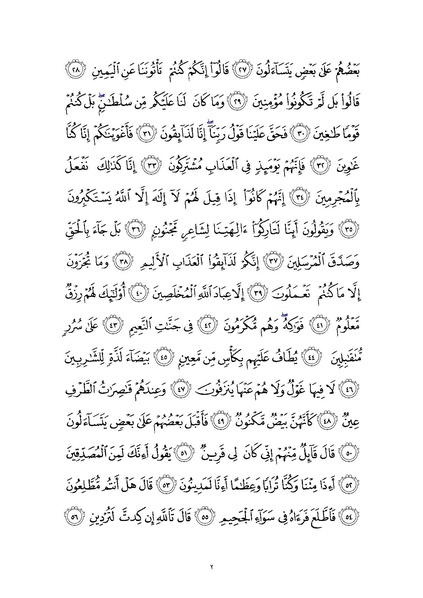 بَعْضُهُمْ عَلَىٰ بَعْضٍ يَتَسَآءَلُونَ ﴿٢٧﴾ قَالُوٓا۟ إِنَّكُمْ كُنتُمْ تَأْتُونَنَا عَنِ ٱلْيَمِينِ ﴿٢٨﴾
قَالُوا۟ بَل لَّمْ تَكُونُوا۟ مُؤْمِنِينَ ﴿٢٩﴾ وَمَا كَانَ لَنَا عَلَيْكُم مِّن سُلْطَٰنٍۭ ۖ بَلْ كُنتُمْ
قَوْمًا طَٰغِينَ ﴿٣٠﴾ فَحَقَّ عَلَيْنَا قَوْلُ رَبِّنَآ ۖ إِنَّا لَذَآئِقُونَ ﴿٣١﴾ فَأَغْوَيْنَٰكُمْ إِنَّا كُنَّا
غَٰوِينَ ﴿٣٢﴾ فَإِنَّهُمْ يَوْمَئِذٍ فِى ٱلْعَذَابِ مُشْتَرِكُونَ ﴿٣٣﴾ إِنَّا كَذَٰلِكَ نَفْعَلُ
بِٱلْمُجْرِمِينَ ﴿٣٤﴾ إِنَّهُمْ كَانُوٓا۟ إِذَا قِيلَ لَهُمْ لَآ إِلَٰهَ إِلَّا ٱللَّهُ يَسْتَكْبِرُونَ
﴿٣٥﴾ وَيَقُولُونَ أَئِنَّا لَتَارِكُوٓا۟ ءَالِهَتِنَا لِشَاعِرٍ مَّجْنُونٍۭ ﴿٣٦﴾ بَلْ جَآءَ بِٱلْحَقِّ
وَصَدَّقَ ٱلْمُرْسَلِينَ ﴿٣٧﴾ إِنَّكُمْ لَذَآئِقُوا۟ ٱلْعَذَابِ ٱلْأَلِيمِ ﴿٣٨﴾ وَمَا تُجْزَوْنَ
إِلَّا مَا كُنتُمْ تَعْمَلُونَ ﴿٣٩﴾ إِلَّا عِبَادَ ٱللَّهِ ٱلْمُخْلَصِينَ ﴿٤٠﴾ أُو۟لَٰٓئِكَ لَهُمْ رِزْقٌ
مَّعْلُومٌ ﴿٤١﴾ فَوَٰكِهُ ۖ وَهُم مُّكْرَمُونَ ﴿٤٢﴾ فِى جَنَّٰتِ ٱلنَّعِيمِ ﴿٤٣﴾ عَلَىٰ سُرُرٍ
مُّتَقَٰبِلِينَ ﴿٤٤﴾ يُطَافُ عَلَيْهِم بِكَأْسٍ مِّن مَّعِينٍۭ ﴿٤٥﴾ بَيْضَآءَ لَذَّةٍ لِّلشَّٰرِبِينَ
﴿٤٦﴾ لَا فِيهَا غَوْلٌ وَلَا هُمْ عَنْهَا يُنزَفُونَ ﴿٤٧﴾ وَعِندَهُمْ قَٰصِرَٰتُ ٱلطَّرْفِ
عِينٌ ﴿٤٨﴾ كَأَنَّهُنَّ بَيْضٌ مَّكْنُونٌ ﴿٤٩﴾ فَأَقْبَلَ بَعْضُهُمْ عَلَىٰ بَعْضٍ يَتَسَآءَلُونَ
﴿٥٠﴾ قَالَ قَآئِلٌ مِّنْهُمْ إِنِّى كَانَ لِى قَرِينٌ ﴿٥١﴾ يَقُولُ أَءِنَّكَ لَمِنَ ٱلْمُصَدِّقِينَ
﴿٥٢﴾ أَءِذَا مِتْنَا وَكُنَّا تُرَابًا وَعِظَٰمًا أَءِنَّا لَمَدِينُونَ ﴿٥٣﴾ قَالَ هَلْ أَنتُم مُّطَّلِعُونَ
﴿٥٤﴾ فَٱطَّلَعَ فَرَءَاهُ فِى سَوَآءِ ٱلْجَحِيمِ ﴿٥٥﴾ قَالَ تَٱللَّهِ إِن كِدتَّ لَتُرْدِينِ ﴿٥٦﴾
٢